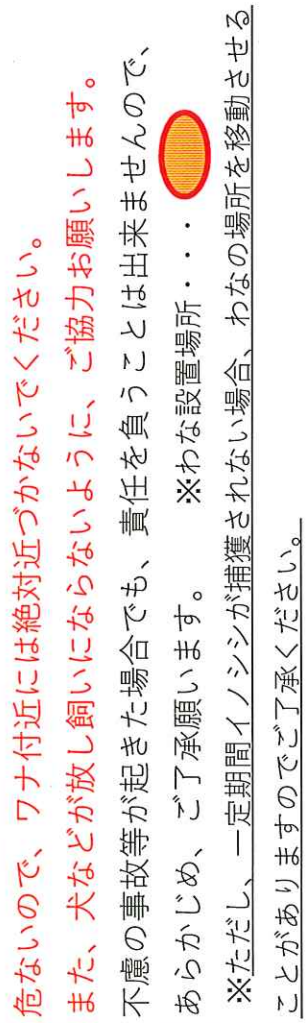 危ないので、ワナ付近には絶対近づかないでください。
また、犬などが放し飼いにならないように、ご協力お願いします。
不慮の事故等が起きた場合でも、責任を負うことは出来ませんので、
あらかじめ、ご了承願います。 ※わな設置場所・・・
※ただし、一定期間イノシシが捕獲されない場合、わなの場所を移動させる
ことがありますのでご了承ください。